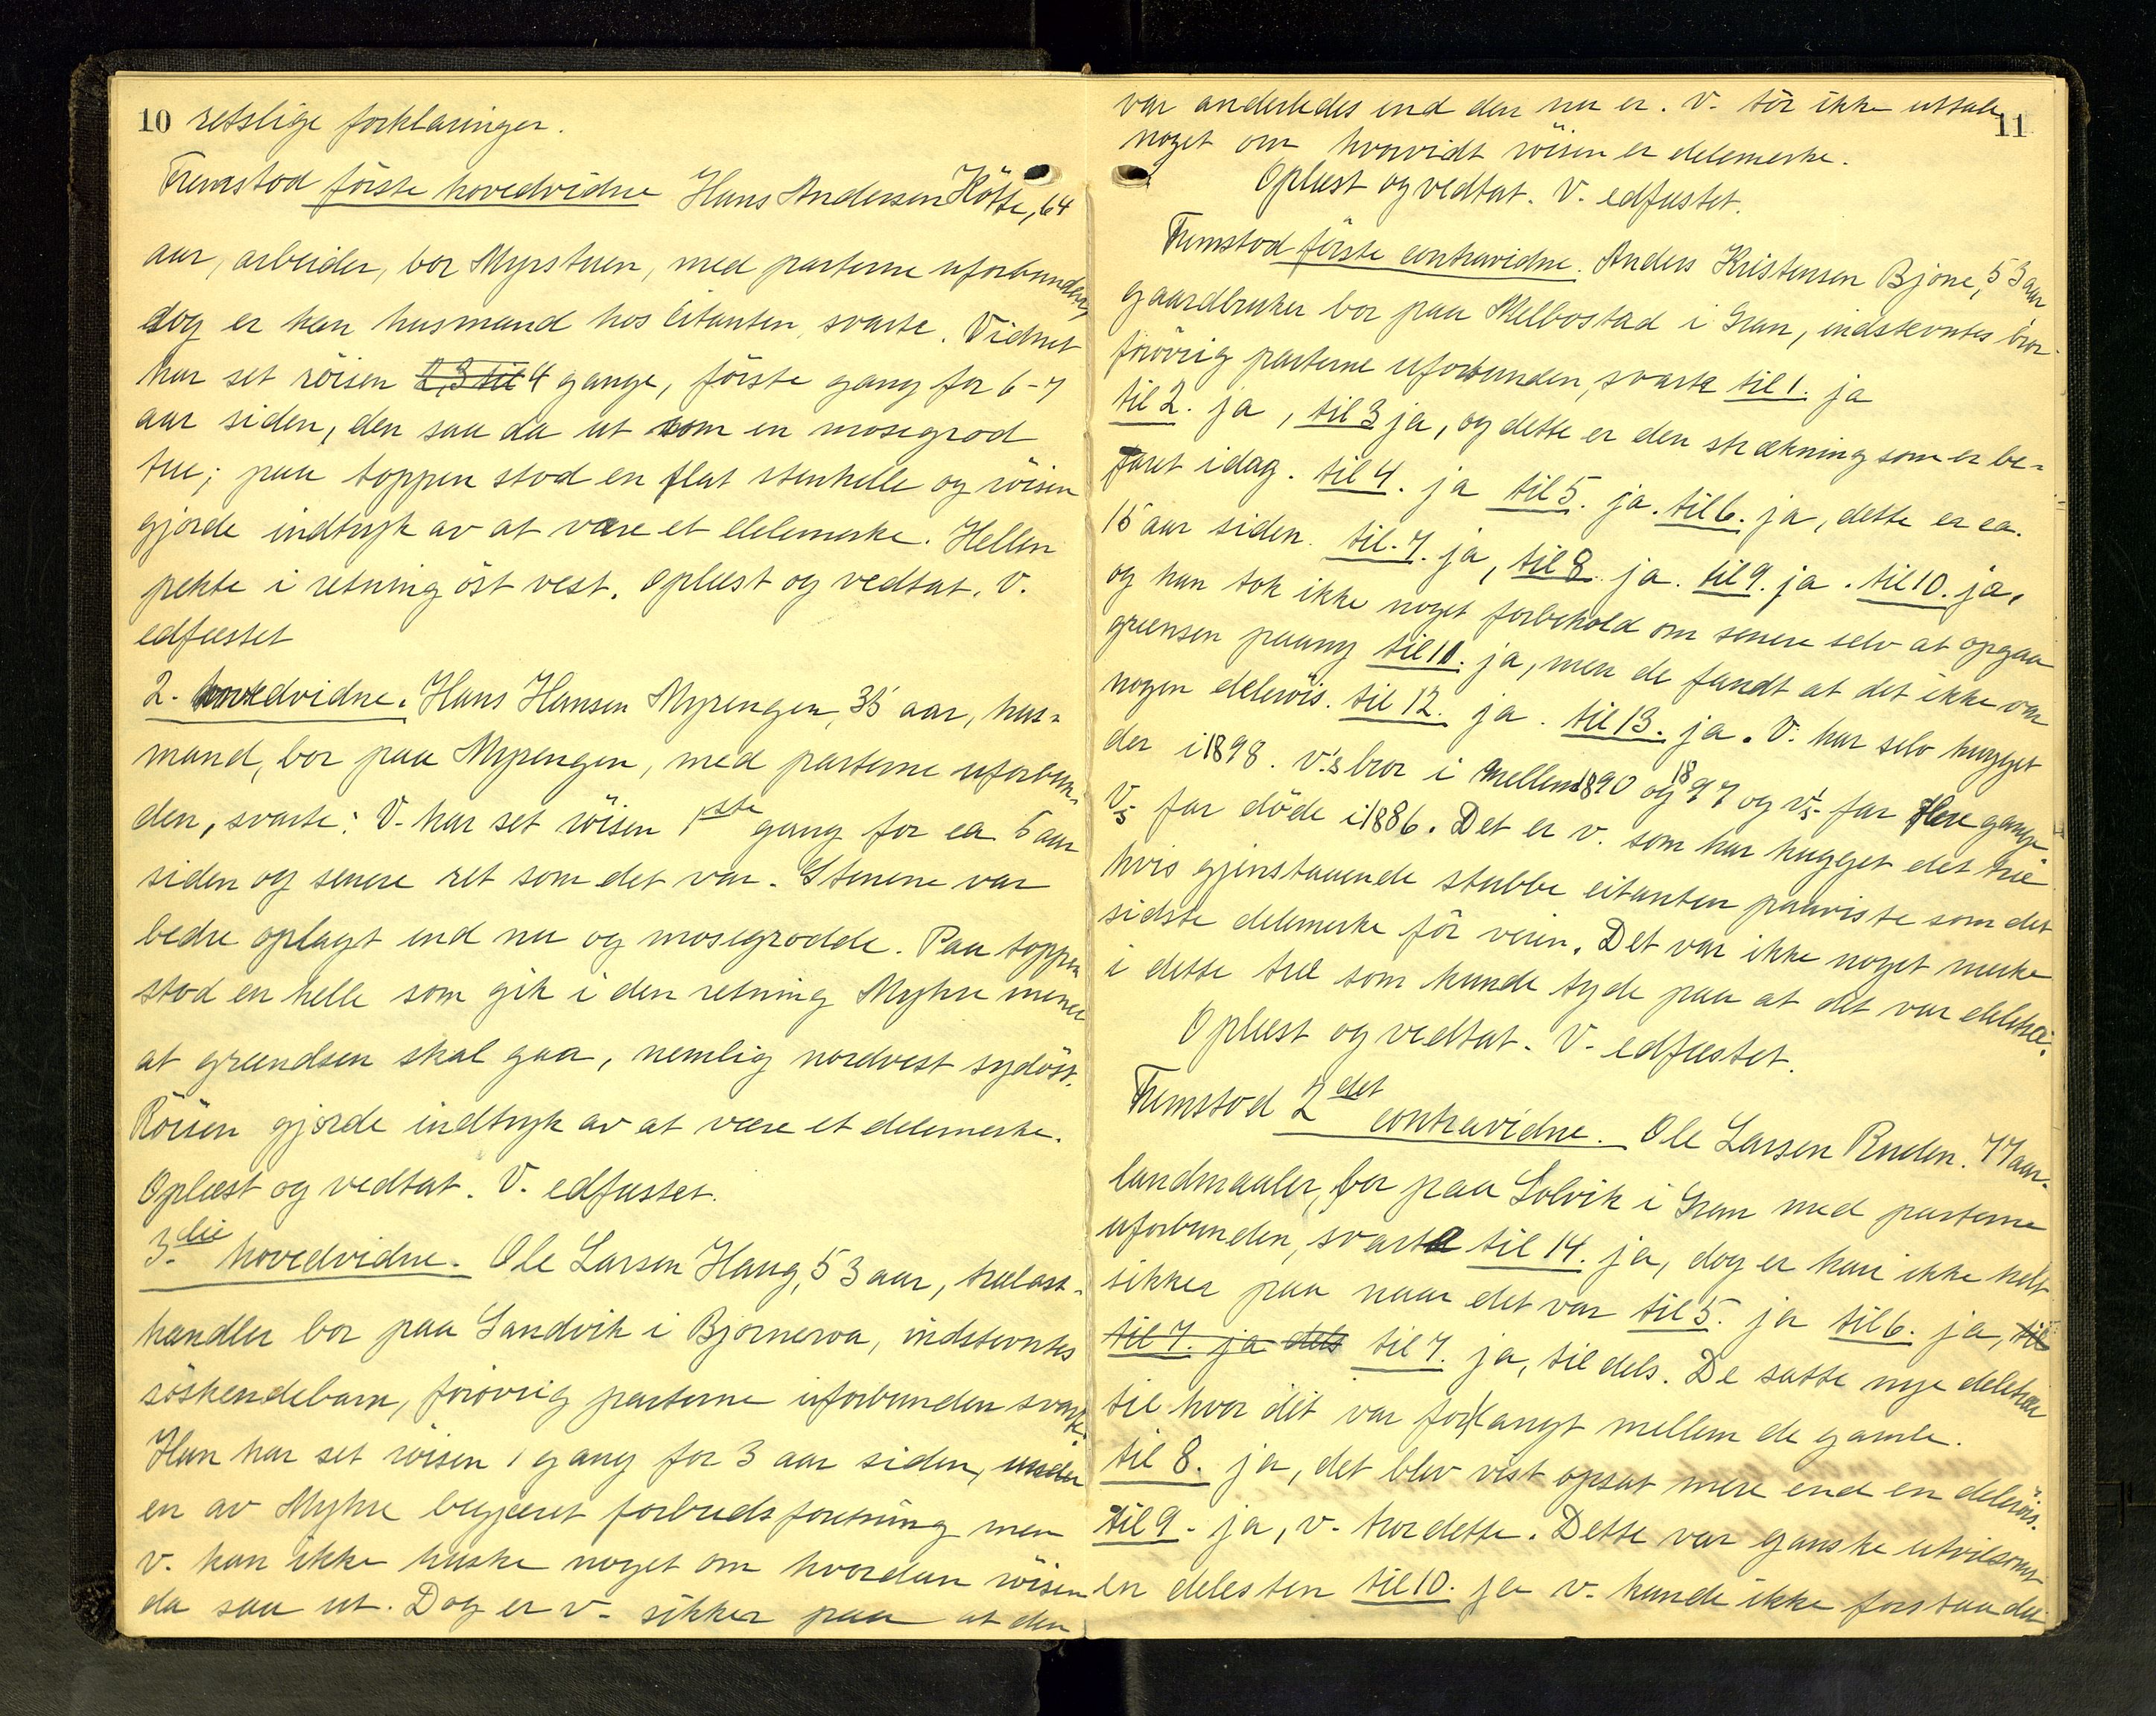 10 retslige forklaringer.
Fremstod første hovedvidne Hans Andersen Kötte, 64
aar, arbeider, bor Myrstuen, med parterne uforbunden,
dog er han husmand hos citanten, svarte. Vidnet
har set röisen 2, 3 til 4 gange, förste gang for 6-7
aar siden, den saa da ut som en mosegrod
tue; paa toppen stod en flat stenhelle og röisen
gjorde indtryk av at være et delemerke. Hellen
pekte i retning öst vest. Oplæst og vedtat. V.
edfæstet
2. hovedvidne. Hans Hansen Myrengen, 35 aar, hus-
mand, bor paa Myrengen, med parterne uforbun-
den, svarte: V. har set röisen 1ste gang for ca. 5 aar
siden og senere ret som det var. Stenene var
bedre oplagt end nu og mosegrodde. Paa toppen
stod en helle som gik i den retning Myhre mener
at grændsen skal gaa, nemlig nordvest sydöst.
Röisen gjorde indtryk av at være et delemerke.
Oplæst og vedtat. V. edfæstet.
3.die hovedvidne. Ole Larsen Haug, 53 aar, trælast-
handler bor paa Sandvik i Bjoneroa, indstevntes
söskendebarn, forövrig parterne uforbunden svarte.
Han har set röisen 1 gang for 3 aar siden, under
en av Myhre begjæret forbudsforretning men
v. kan ikke huske noget om hvordan röisen
da saa ut. Dog er v. sikker paa at den
11
var anderledes end den nu er. V. tör ikke uttale
noget om hvorvidt röisen er delemerke.
Oplæst og vedtat. V. edfæstet.
Fremstod første contravidne. Anders Kristensen Bjone, 53 aar
gaardbruker bor paa Melbostad i Gran, indstevntes bror
forövrig parterne uforbunden, svarte til 1. ja
til 2. ja, til 3 ja, og dette er den strækning som er be-
faret idag. til 4. ja til 5. ja. til 6. ja, dette er ca.
15 aar siden. til. 7. ja, til 8. ja. til 9. ja. til 10. ja,
og han tok ikke noget forbehold om senere selv at opgaa
grænsen paany til 11. ja, men de fandt at det ikke var
nogen deleröis. til 12. ja. til 13. ja. V. har selv hugget
der i 1898. v.'s bror i mellem 1890 og 1897 og v's. far flere gange
V's far döde i 1886. Det er v. som har hugget det træ
hvis gjenstaaende stubbe citanten paaviste som det
sidste delemerke för veien. Det var ikke noget merke
i dette træ som kunde tyde paa at det var deletræ.
Oplæst og vedtat. V. edfæstet.
Fremstod 2det contravidne. Ole Larsen Ruden. 77 aar.
landmaaler, bor paa Solvik i Gran med parterne
uforbunden, svarte til 14. ja, dog er han ikke helt
sikker paa naar det var til 5. ja til 6. ja, til
til 7. ja dels til 7. ja, til dels. De satte nye deletrær
til hvor det var for langt mellem de gamle.
til 8. ja, det blev vist opsat mere end en deleröis.
til 9. ja, v. tror dette. Dette var ganske utvilsomt
en delesten til 10. ja v. kunde ikke forstaa det